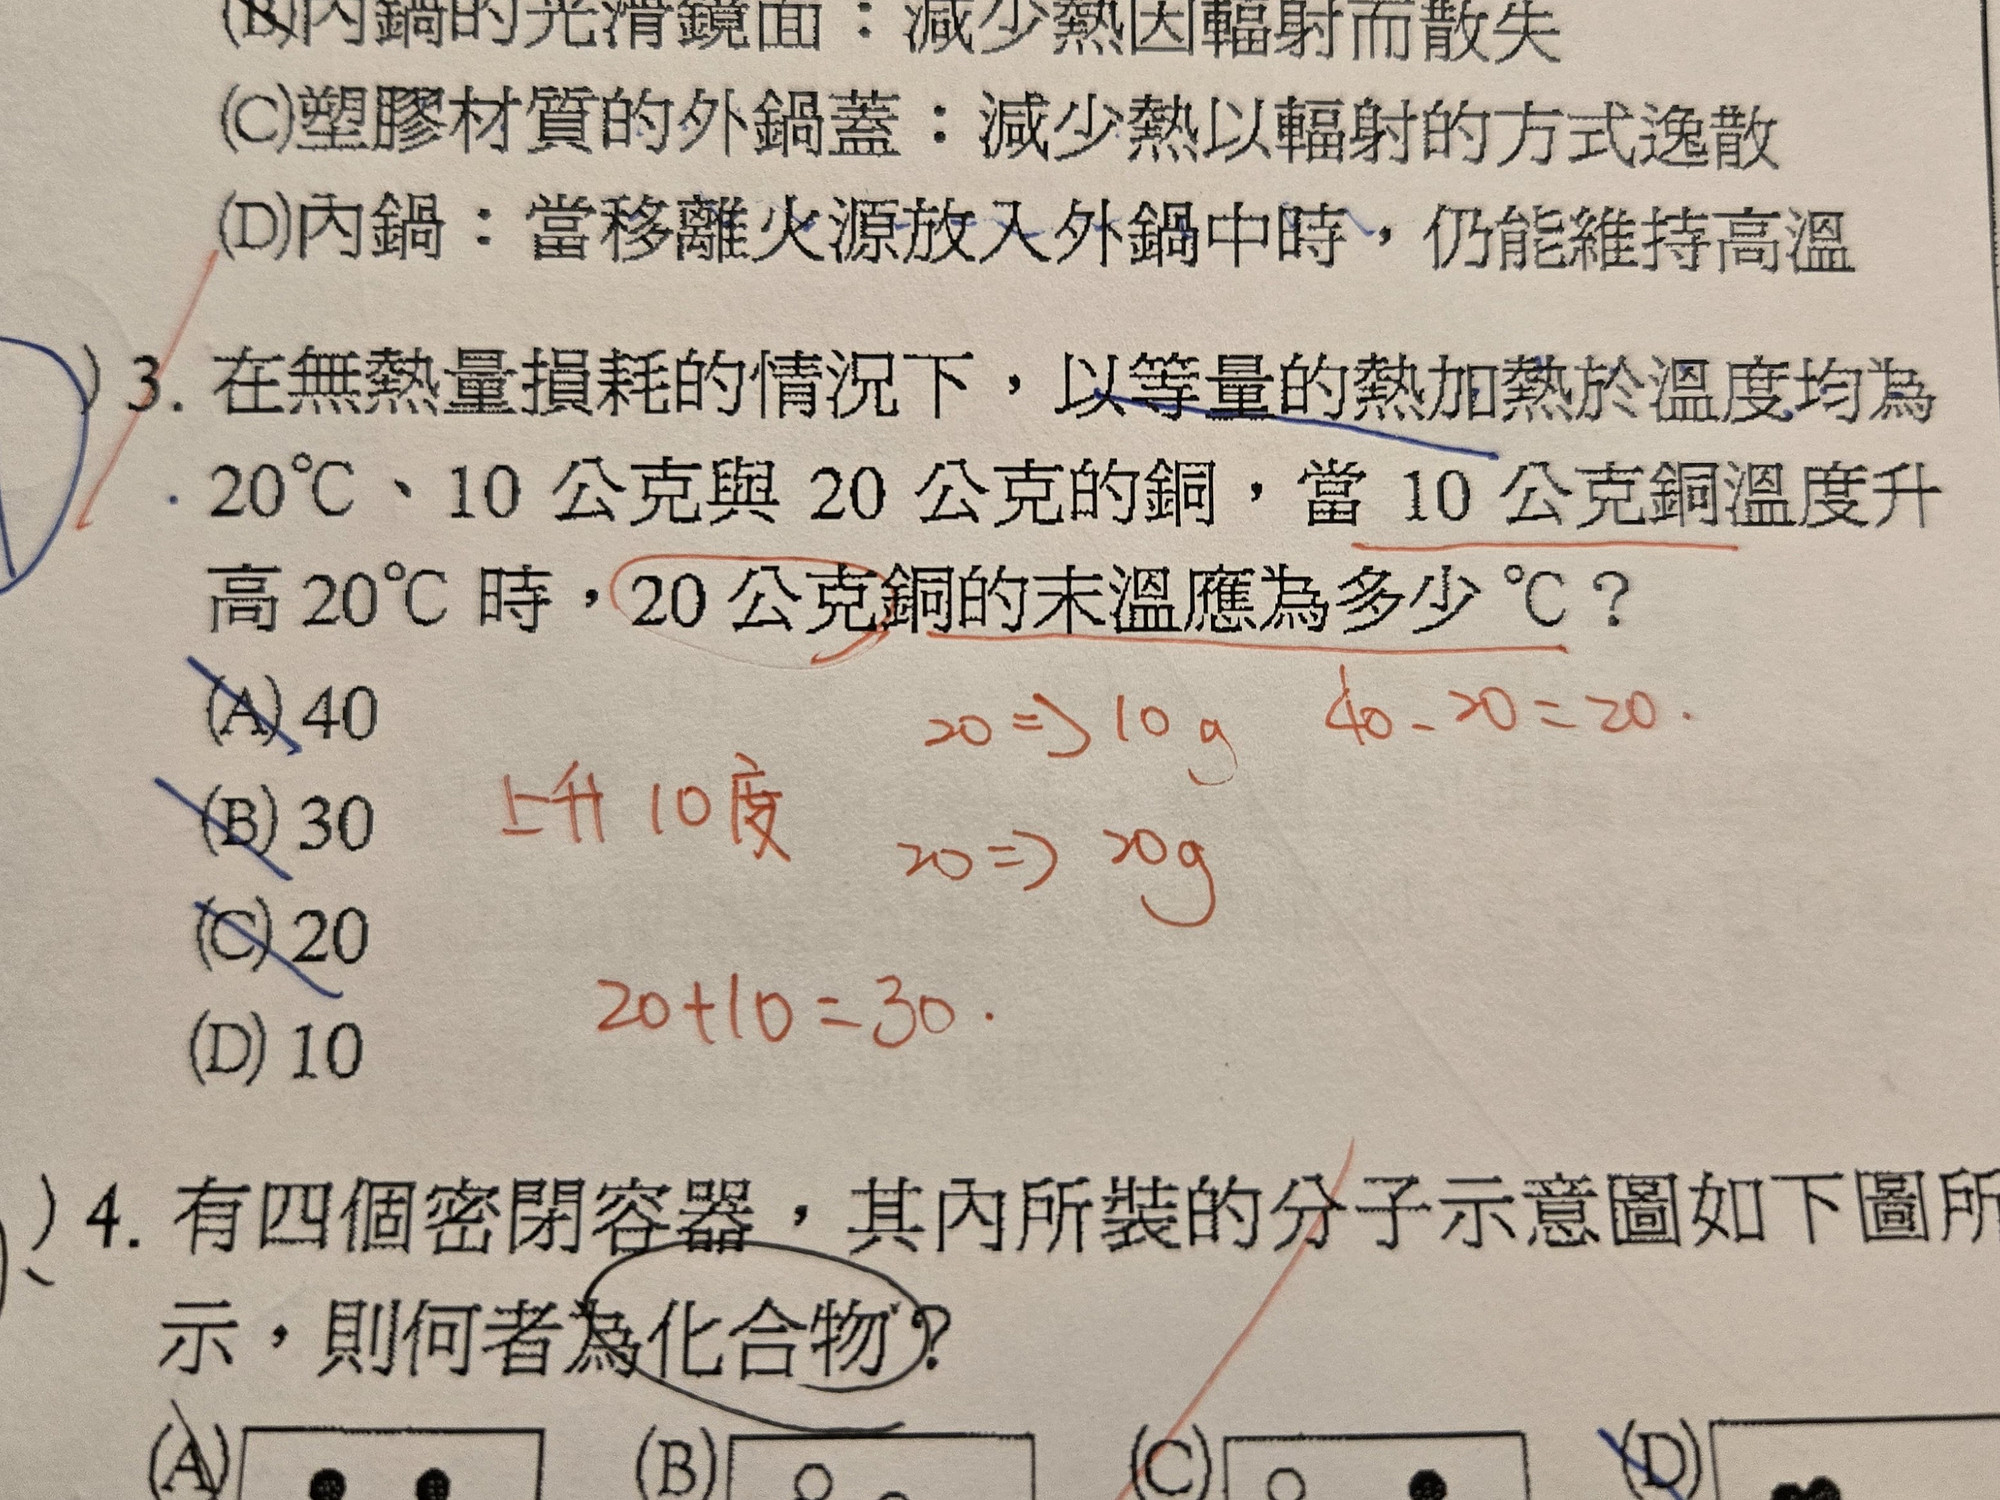 (B)內鍋的光滑鏡面：減少熱因輻射而散失
(C)塑膠材質的外鍋蓋：減少熱以輻射的方式逸散
(D)內鍋：當移離火源放入外鍋中時，仍能維持高溫
)3. 在無熱量損耗的情況下，以等量的熱加熱於溫度均為
20℃、10 公克與 20 公克的銅，當 10 公克銅溫度升
高 20℃ 時，20 公克銅的末溫應為多少 ℃？
(A) 40
20⇒10g 40-20=20.
(B) 30
上升 10度
20⇒20g
(C) 20
20+10=30.
(D) 10
)4. 有四個密閉容器，其內所裝的分子示意圖如下圖所
示，則何者為化合物？
(A) (B) (C) (D)